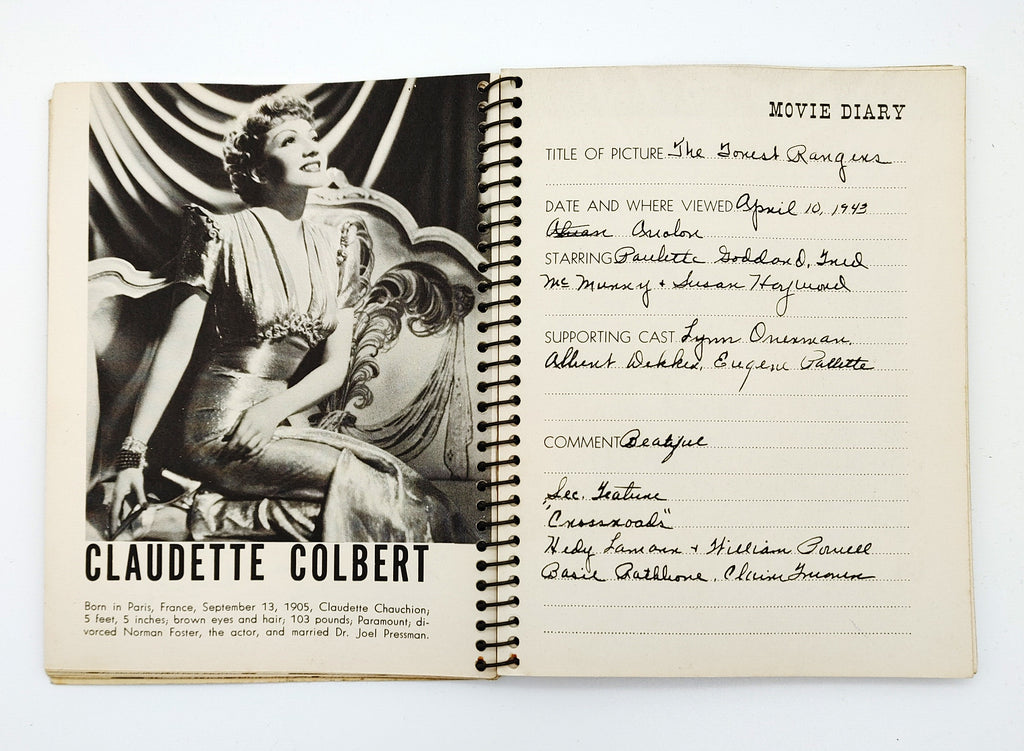 CLAUDETTE COLBERT
Born in Paris, France, September 13, 1905, Claudette Chauchion;
5 feet, 5 inches; brown eyes and hair; 103 pounds; Paramount; di-
vorced Norman Foster, the actor, and married Dr. Joel Pressman.
MOVIE DIARY
TITLE OF PICTURE The Forest Rangers
DATE AND WHERE VIEWED April 10, 1943
Avalon
STARRING Paulette Goddard, Fred
Mc Murry + Susan Hayward
SUPPORTING CAST Lynn Overman,
Albert Dekker, Eugene Pallette
COMMENT
Sec. Feature
"Crossroads"
Hedy Lamarr + William Powell
Basil Rathbone, Claire Trevor